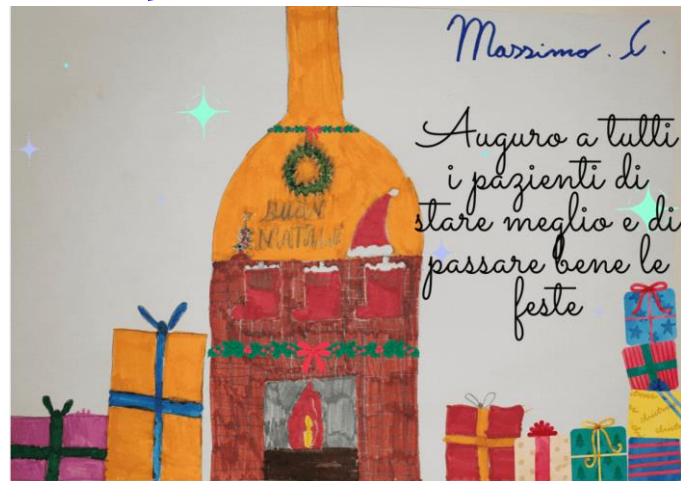 Massimo. S.
Auguro a tutti
i pazienti di
stare meglio e di
passare bene le
feste
BUON
NATALE